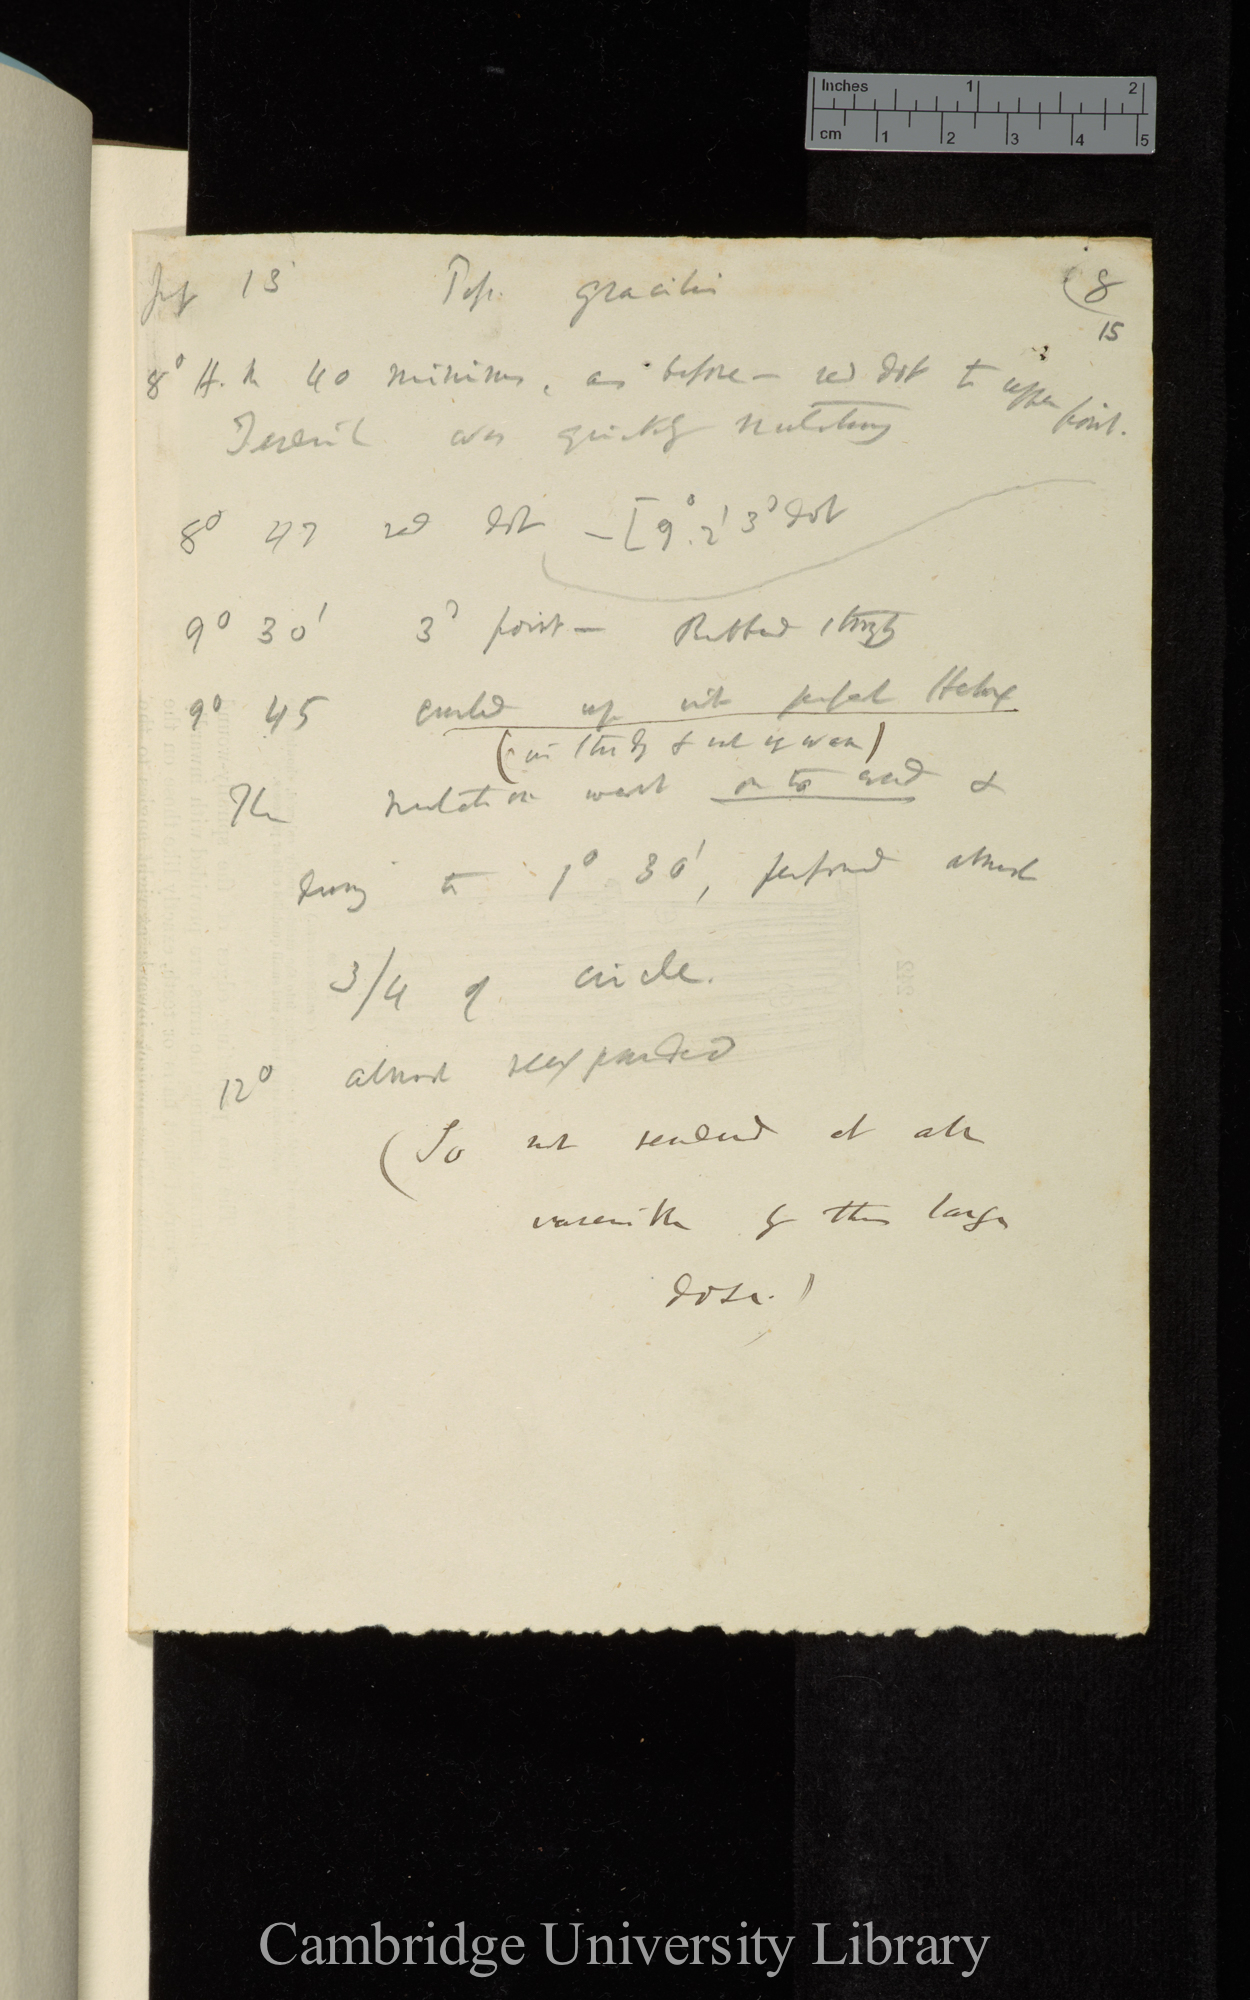 Inches 1 2
cm 1 2 3 4 5
13 Pass. gracilis (8
15
8° 40 minims, as before — red dot to upper point.
Tendril was quickly nutating
8° 47 red dot — [9°. 2' 3d dot
9° 30' 3d point — Rubbed
9° 45 curled up into perfect Helix
(in & not in)
The nutation went on to end &
during to 1° 30', performed almost
3/4 of circle.
12° almost reexpanded
(So not rendered at all
insensible by this large
dose.)
Cambridge University Library